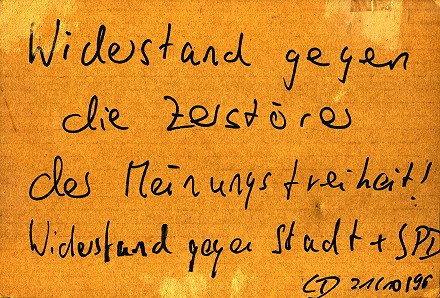 Widerstand gegen
die Zerstörer
der Meinungsfreiheit!
Widerstand gegen Stadt + SPD
CD 21/10/96